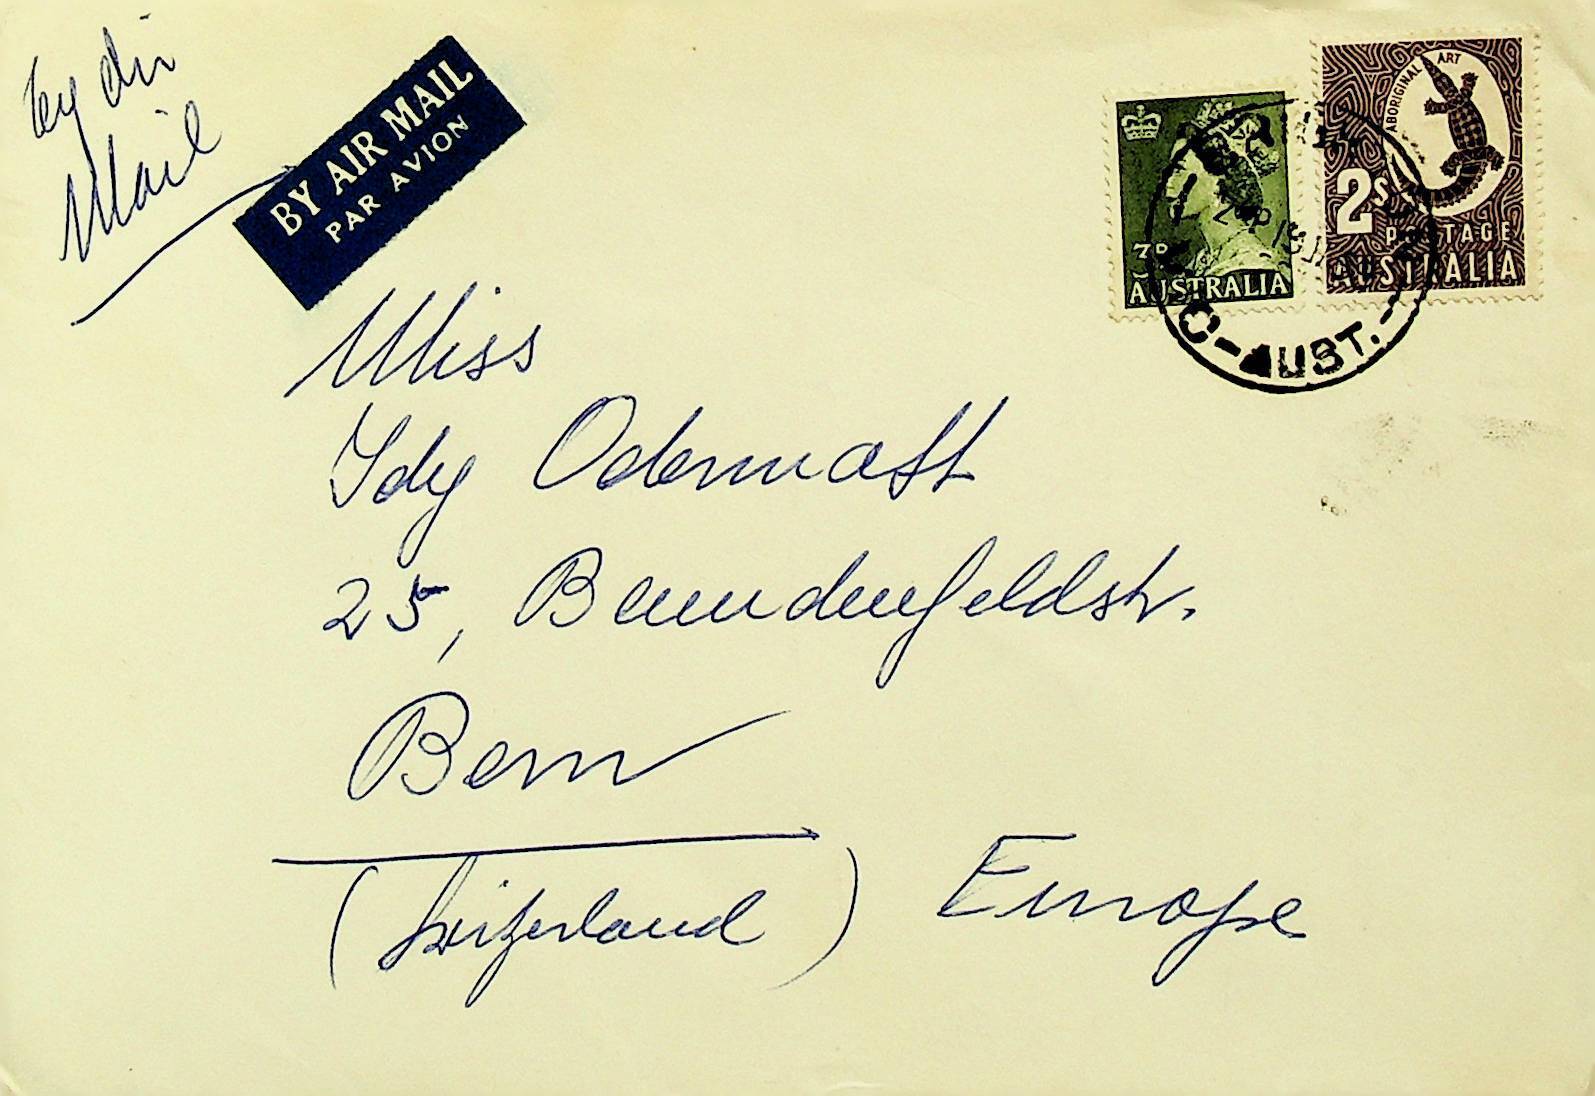 by Air
Mail
BY AIR MAIL
PAR AVION
ABORIGINAL ART
2S
POSTAGE
AUSTRALIA
3D
AUSTRALIA
C-AUST.-
Miss
Idy Odermatt
25, Beundenfeldstr.
Bern
(Switzerland) Europe